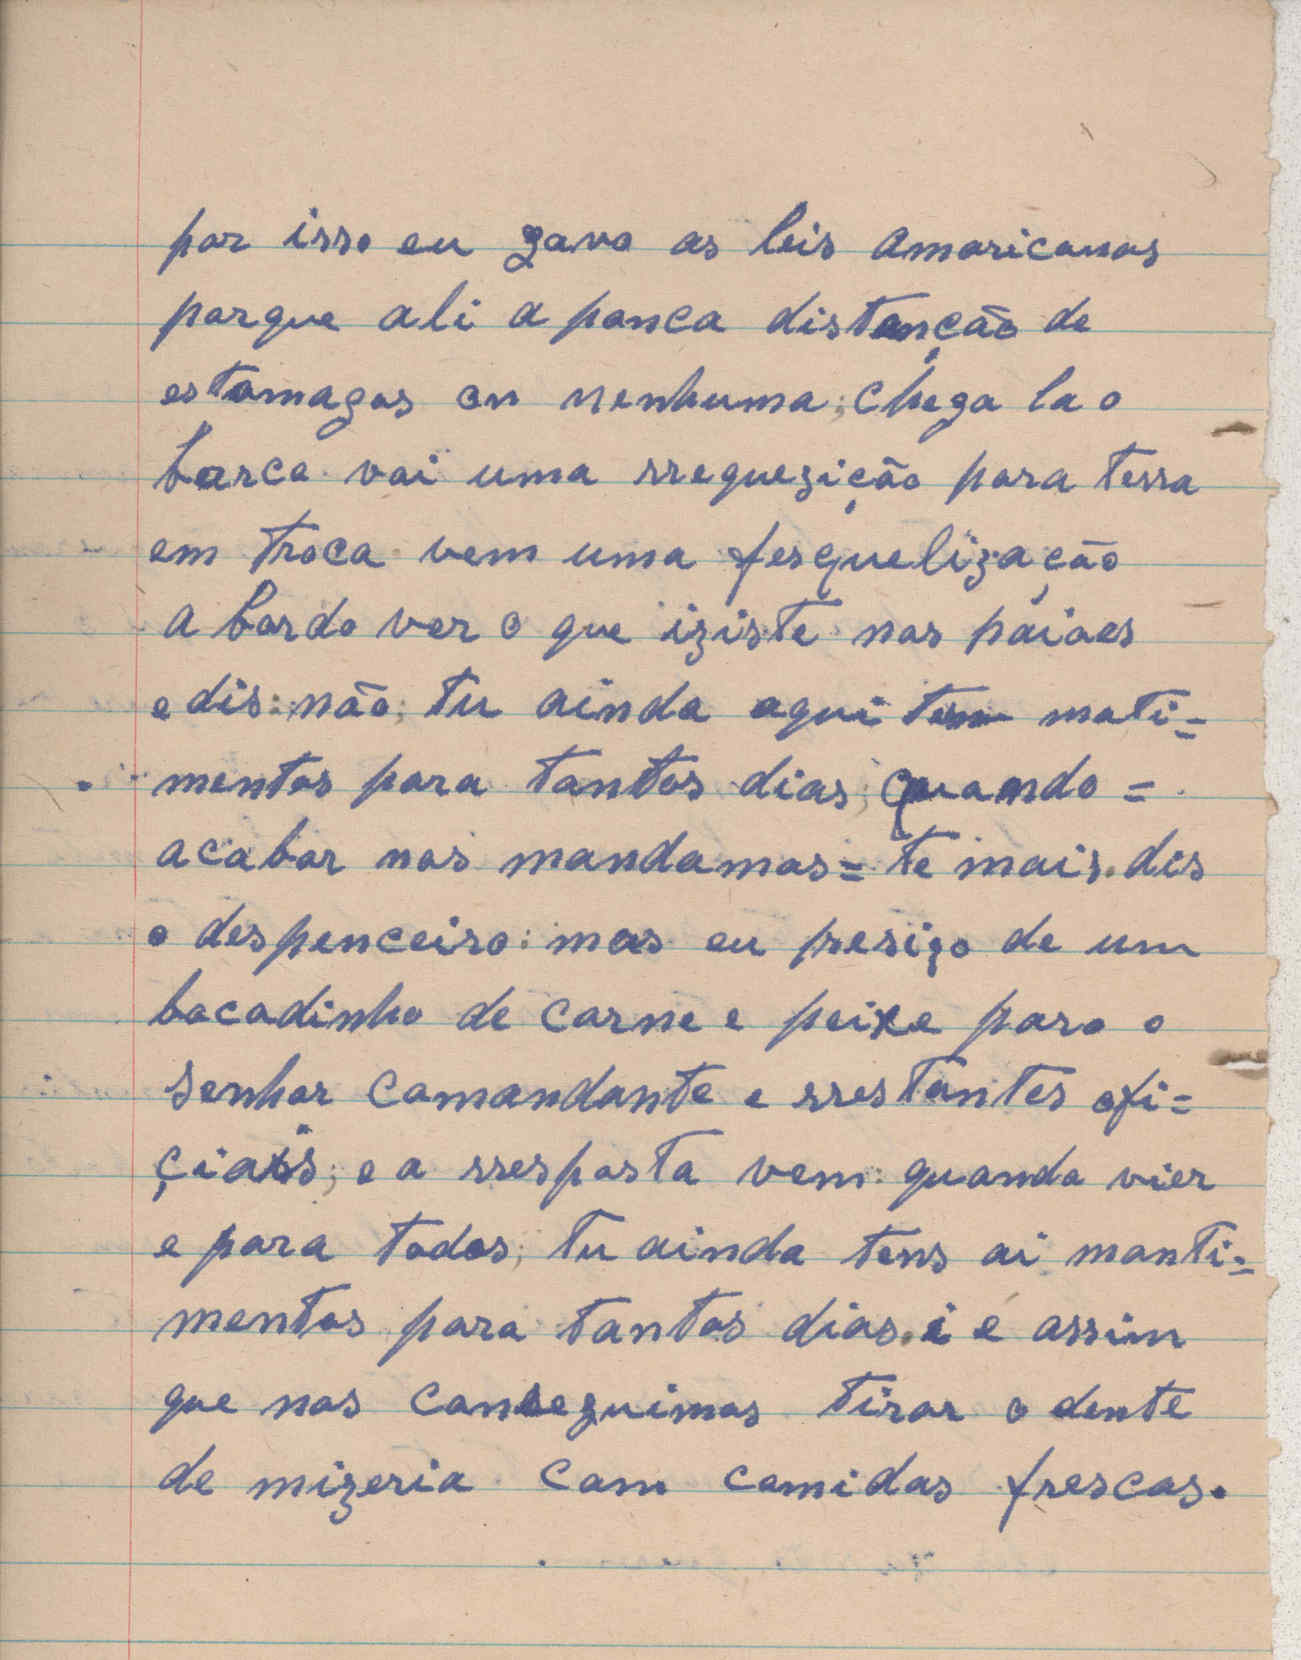 por isso eu gavo as leis amaricanas
porque ali a pouca distanção de
estomagos ou nenhuma; chega la o
barco vai uma rrequezição para terra
em troca vem uma fesquelização
a bordo ver o que iziste nos paioes
e dis: não; tu ainda aqui tem mati=
mentos para tantos dias; quando =
acabar nos mandamos= te mais. dis
o despenceiro: mas eu presizo de um
bocadinho de carne e peixe para o
senhor comandante e rrestantes ofi=
çiais; e a rresposta vem: quando vier
e para todos; tu ainda tens ai manti=
mentos para tantos dias. i é assim
que nos conseguimos tirar o dente
de mizeria com comidas frescas.